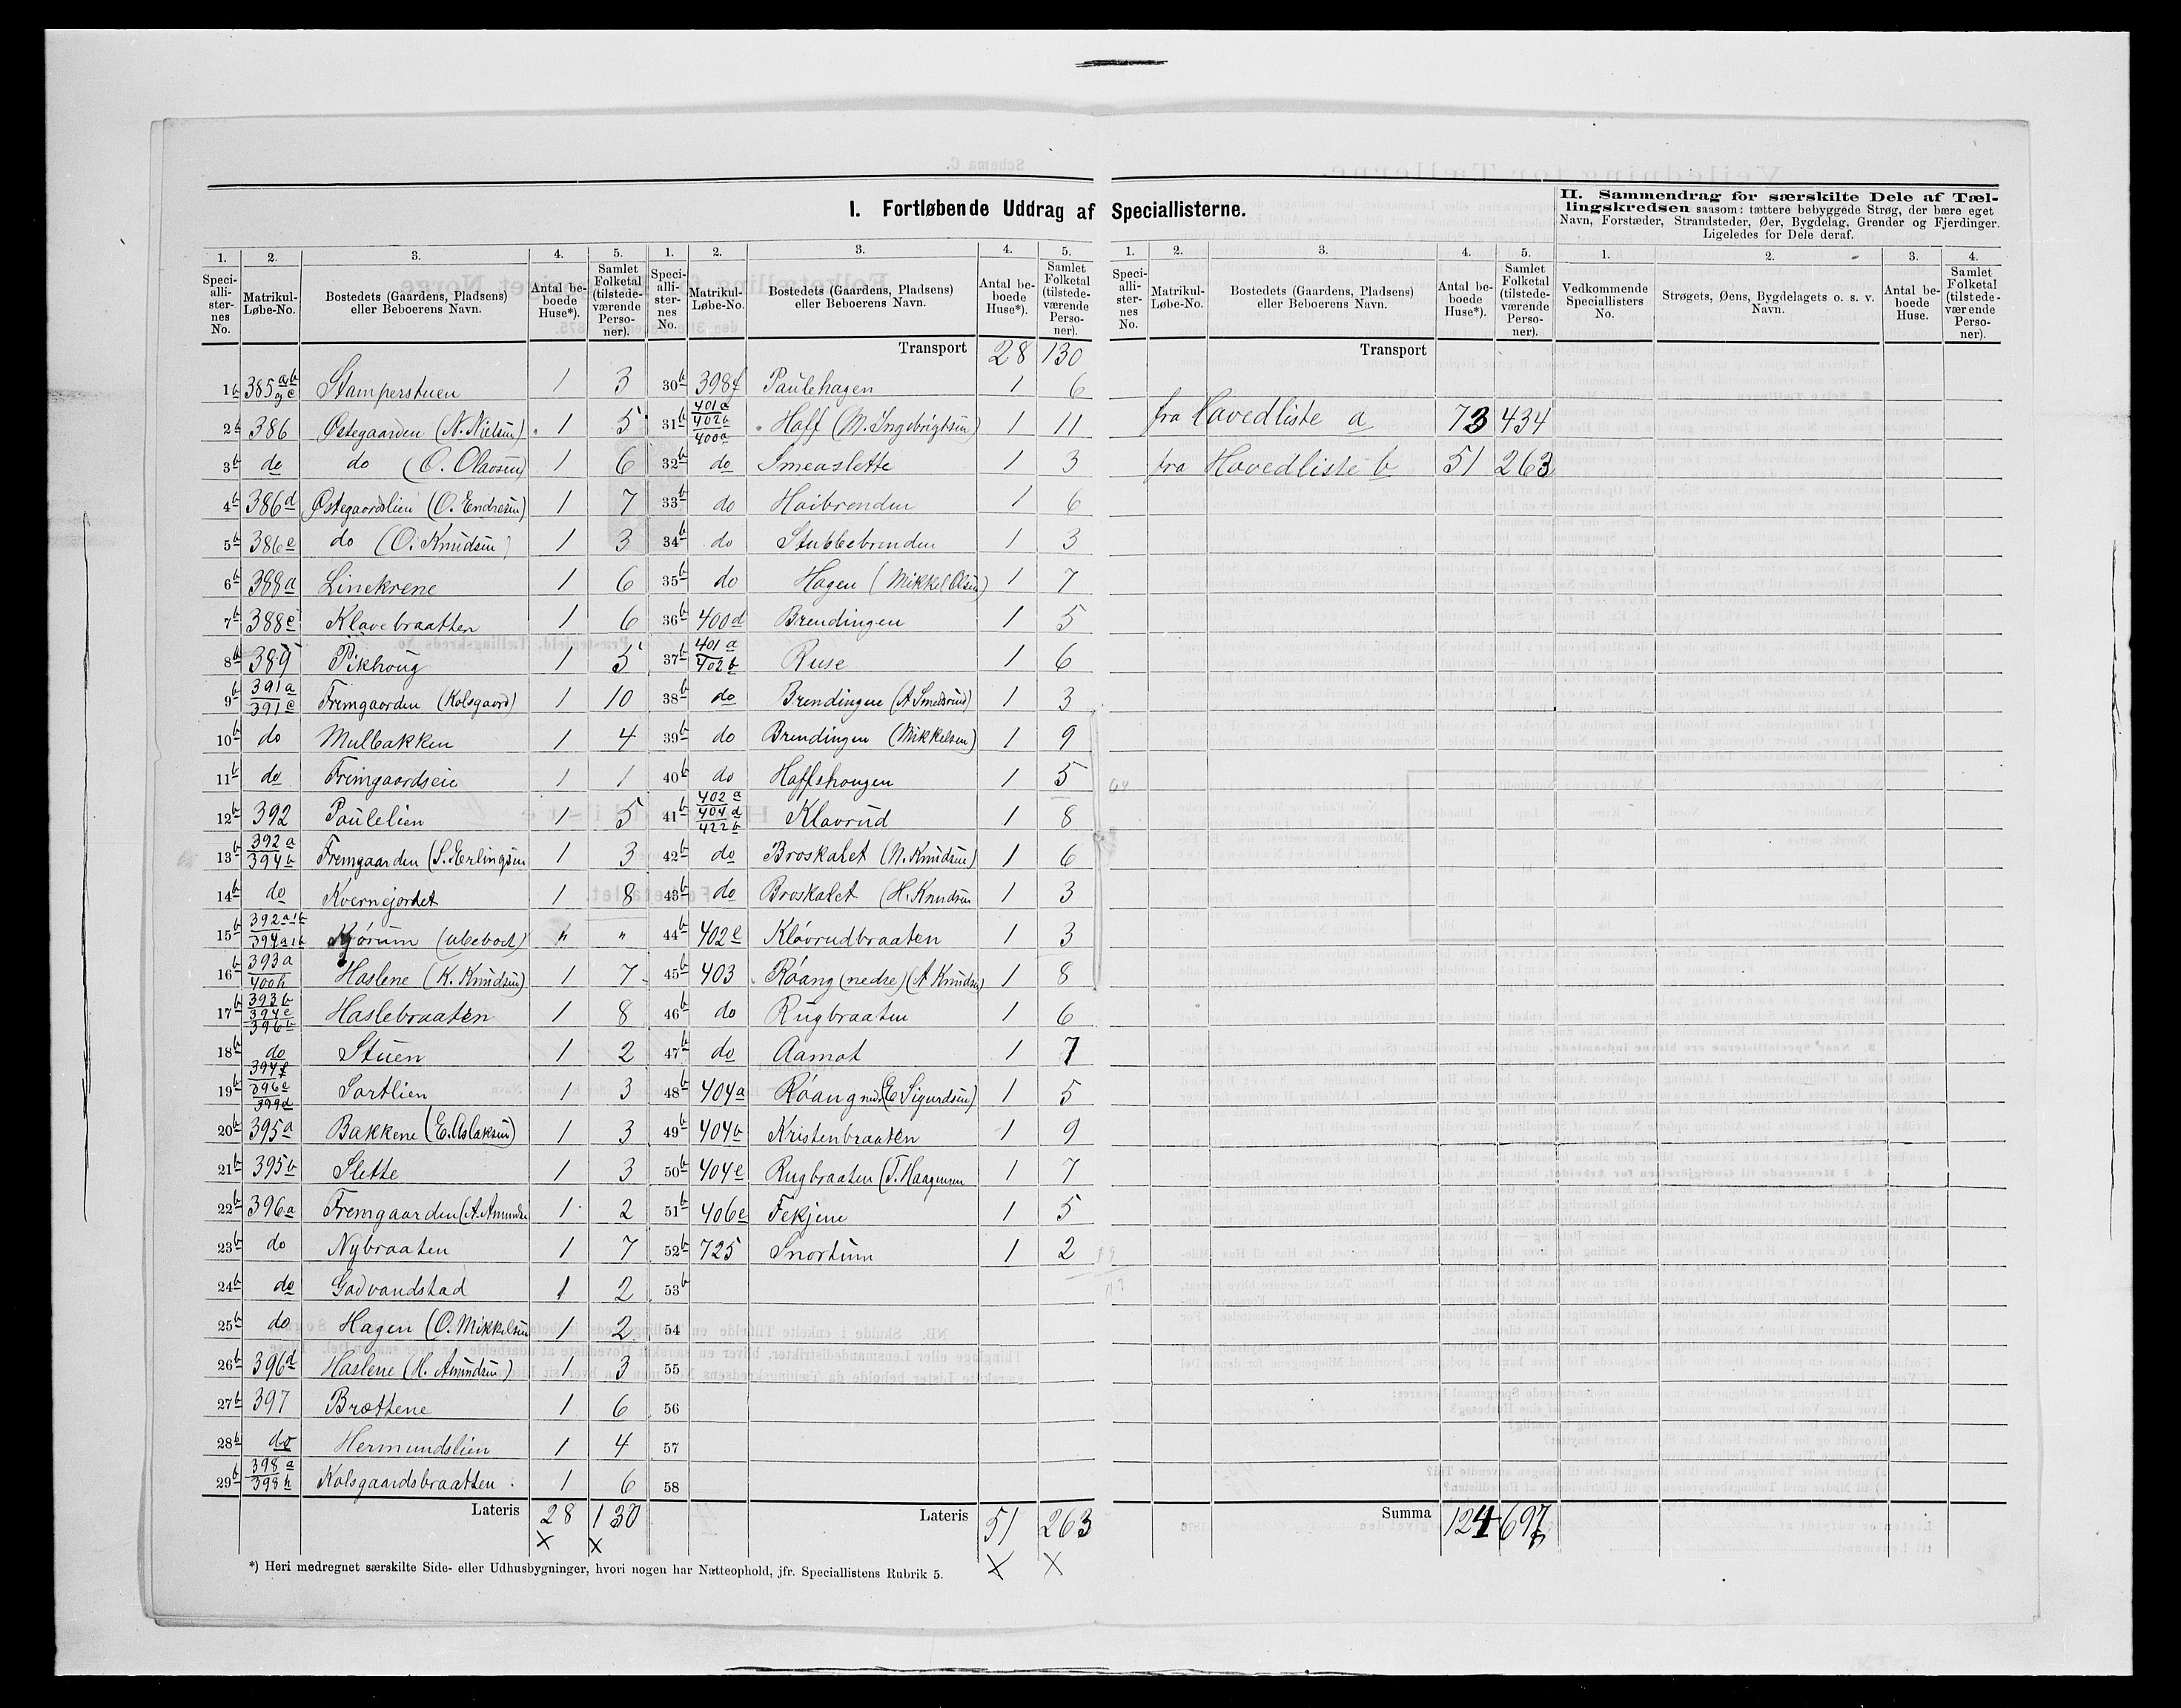 I. Fortløbende Uddrag af Speciallisterne.
II. Sammendrag for særskilte Dele af Tæl-
lingskredsen saasom: tættere bebyggede Strøg, der bære eget
Navn, Forstæder, Strandsteder, Øer, Bygdelag, Grender og Fjerdinger.
Ligeledes for Dele deraf.
1. 2. 3. 4. 5. 1. 2. 3. 4. 5. 1. 2. 3. 4. 5. 1. 2. 3. 4.
Speciallisternes No. Matrikul-Løbe-No. Bostedets (Gaardens, Pladsens) eller Beboerens Navn. Antal beboede Huse*). Samlet Folketal (tilstedeværende Personer).
Speciallisternes No. Matrikul-Løbe-No. Bostedets (Gaardens, Pladsens) eller Beboerens Navn. Antal beboede Huse*). Samlet Folketal (tilstedeværende Personer).
Speciallisternes No. Matrikul-Løbe-No. Bostedets (Gaardens, Pladsens) eller Beboerens Navn. Antal beboede Huse*). Samlet Folketal (tilstedeværende Personer).
Vedkommende Speciallisters No. Strøgets, Øens, Bygdelagets o. s. v. Navn. Antal beboede Huse. Samlet Folketal (tilstedeværende Personer).
1b 385 Stamperstuen 1 3
2b 386 Østegaarden (N. Nielsen) 1 5
3b do do (O. Olavsen) 1 6
4b 386d Østegaardslien (O. Endresen) 1 7
5b 386e do (O. Knudsen) 1 3
6b 388a Linekrene 1 6
7b 388c Klavebraatten 1 6
8b 389 Pikhoug 1 5
9b 391a 391c Fremgaarden (Kolsgaard) 1 10
10b do Mulbakken 1 4
11b do Fremgaardseie 1 1
12b 392 Paulelien 1 5
13b 392a 394b Fremgaarden (S. Erlingsen 1 3
14b do Kvernejordet 1 8
15b 392a1b 394a1b Kjørum (ubeboet) " "
16b 393a 400h Haslene (K. Knudsen) 1 7
17b 393b 394e 396b Haslebraaten 1 8
18b do Stuen 1 2
19b 394f 396c 399d Sortlien 1 3
20b 395a Bakkene (E. Aslaksen) 1 3
21b 395b Slette 1 3
22b 396a Fremgaarden (A. Amunds 1 2
23b do Nybraaten 1 7
24b do Godvandstad 1 2
25b do Hagen (O. Mikkelsen 1 2
26b 396d Haslene (H. Amundsen) 1 3
27b 397 Brøttene 1 6
28b do Hermundslien 1 4
29b 398a 398h Kolsgaardsbraatten 1 6
Lateris 28 130
Transport 28 130
30b 398f Paulehagen 1 6
31b 401a 402b 400a Haff (M. Ingebrigtsen) 1 11
32b do Smedslette 1 3
33b do Hoibrenden 1 6
34b do Stubbebrenden 1 3
35b do Hagen (Mikkel Olsen) 1 7
36b 400d Brendingen 1 5
37b 401a 402b Ruse 1 6
38b do Brendingen (A Smedsrud) 1 3
39b do Brendingen (Mikkelsen) 1 9
40b do Haffshougen 1 5
41b 402a 404d 422b Klovrud 1 8
42b do Broskatet (N. Knudsen) 1 6
43b do Broskatet (H. Knudsen 1 3
44b 402e Kløvrudbraaten 1 3
45b 403 Røang (nedre) (A Knudsen) 1 8
46b do Rugbraaten 1 6
47b do Aamot 1 7
48b 404a Røang (E Sigurdsen) 1 5
49b 404b Kristenbraaten 1 9
50b 404e Rugbraaten (T. Haagensen 1 7
51b 406e Fekjene 1 5
52b 725 Snortum 1 2
53b
54
55
56
57
58
Lateris 51 263
Transport
fra Hovedliste a 73 434
fra Hovedliste b 51 263
Summa 124 697
*) Heri medregnet særskilte Side- eller Udhusbygninger, hvori nogen har Natteophold, jfr. Speciallistens Rubrik 5.